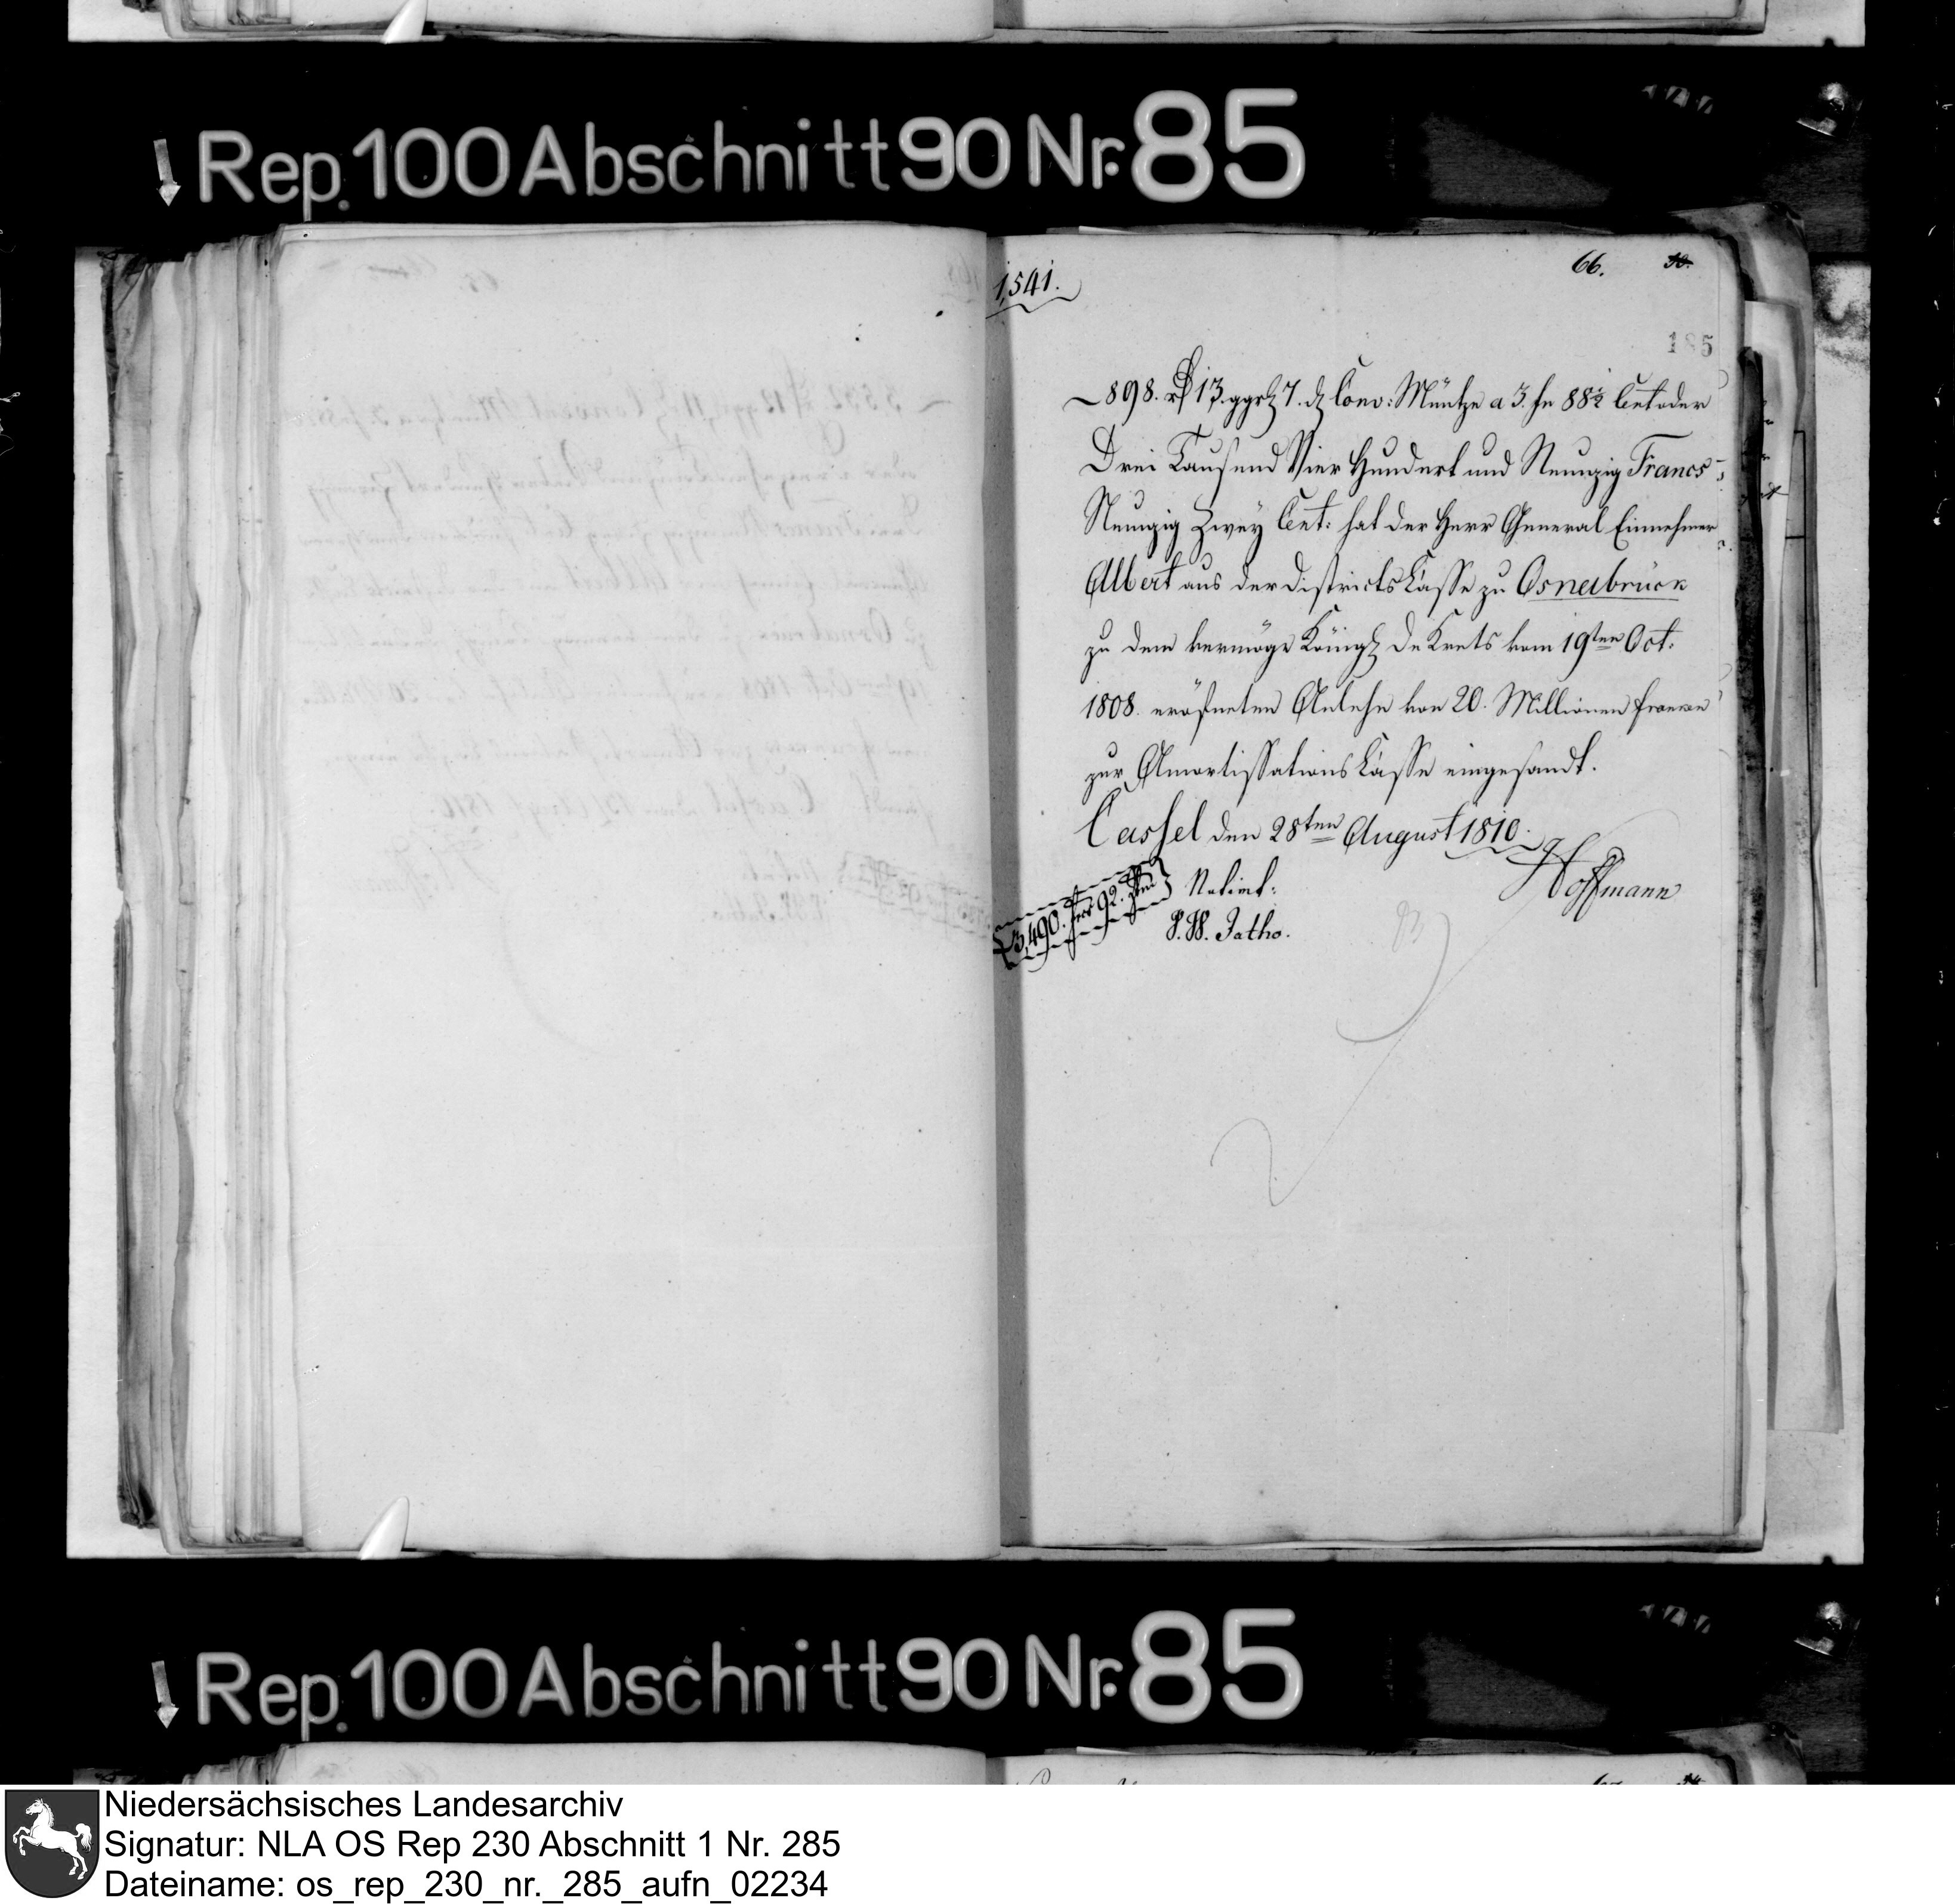 Rep. 100 Abschnitt 90 Nr. 85
1,541.
66. 30.
185
898. rℓ 13. ggrl 7. dl Conv: Müntze a 3. fr 88½ Cent oder
Drei Tausend Vier Hundert und Neunzig Francs
Neunzig Zwey Cent: hat der Herr General Einnehmer
Albert aus der Districts Casse zu Osnabrück
zu dem vermöge Königl DeKrets vom 19ten Oct:
1808. eröfneten Anlehn von 20. Millionen franken
zur Amortissations Casse eingesandt.
Cassel den 28ten August 1810.
Hoffmann
3,490. frcs 92. Cten
Notirt:
P. W. Jatho.
Rep. 100 Abschnitt 90 Nr. 85
Niedersächsisches Landesarchiv
Signatur: NLA OS Rep 230 Abschnitt 1 Nr. 285
Dateiname: os_rep_230_nr._285_aufn_02234